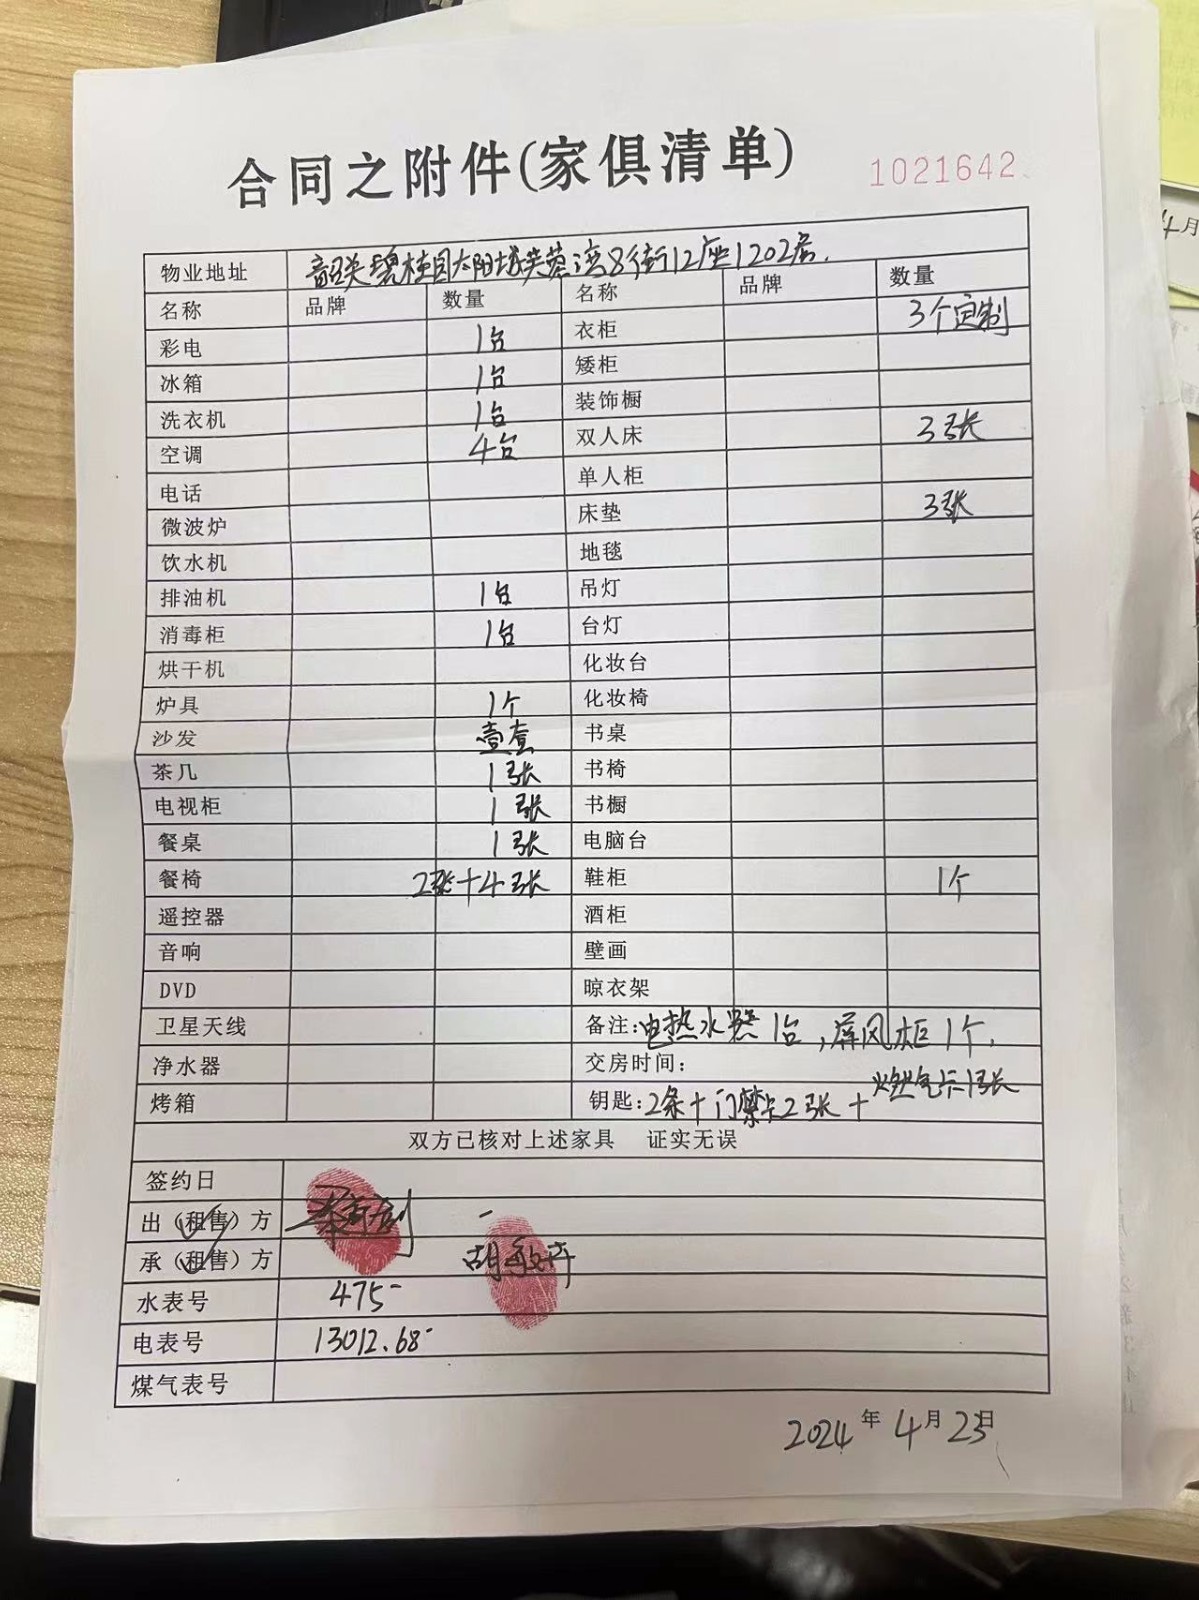 合同之附件(家俱清单)
1021642
物业地址 韶关碧桂园太阳城芙蓉湾8街12座1202房.
名称 品牌 数量 名称 品牌 数量
彩电 1台 衣柜 3个定制
冰箱 1台 矮柜
洗衣机 1台 装饰橱
空调 4台 双人床 3张
电话 单人柜
微波炉 床垫 3张
饮水机 地毯
排油机 1台 吊灯
消毒柜 1台 台灯
烘干机 化妆台
炉具 1个 化妆椅
沙发 壹套 书桌
茶几 1张 书椅
电视柜 1张 书橱
餐桌 1张 电脑台
餐椅 2张+4张 鞋柜 1个
遥控器 酒柜
音响 壁画
DVD 晾衣架
卫星天线 备注:电热水器1台,屏风柜1个,
净水器 交房时间:
烤箱 钥匙:2条+门禁卡2张+燃气卡1张
双方已核对上述家具 证实无误
签约日
出(租售)方
承(租售)方 胡敏卉
水表号 475-
电表号 13012.68-
煤气表号
2024年4月23日
4月